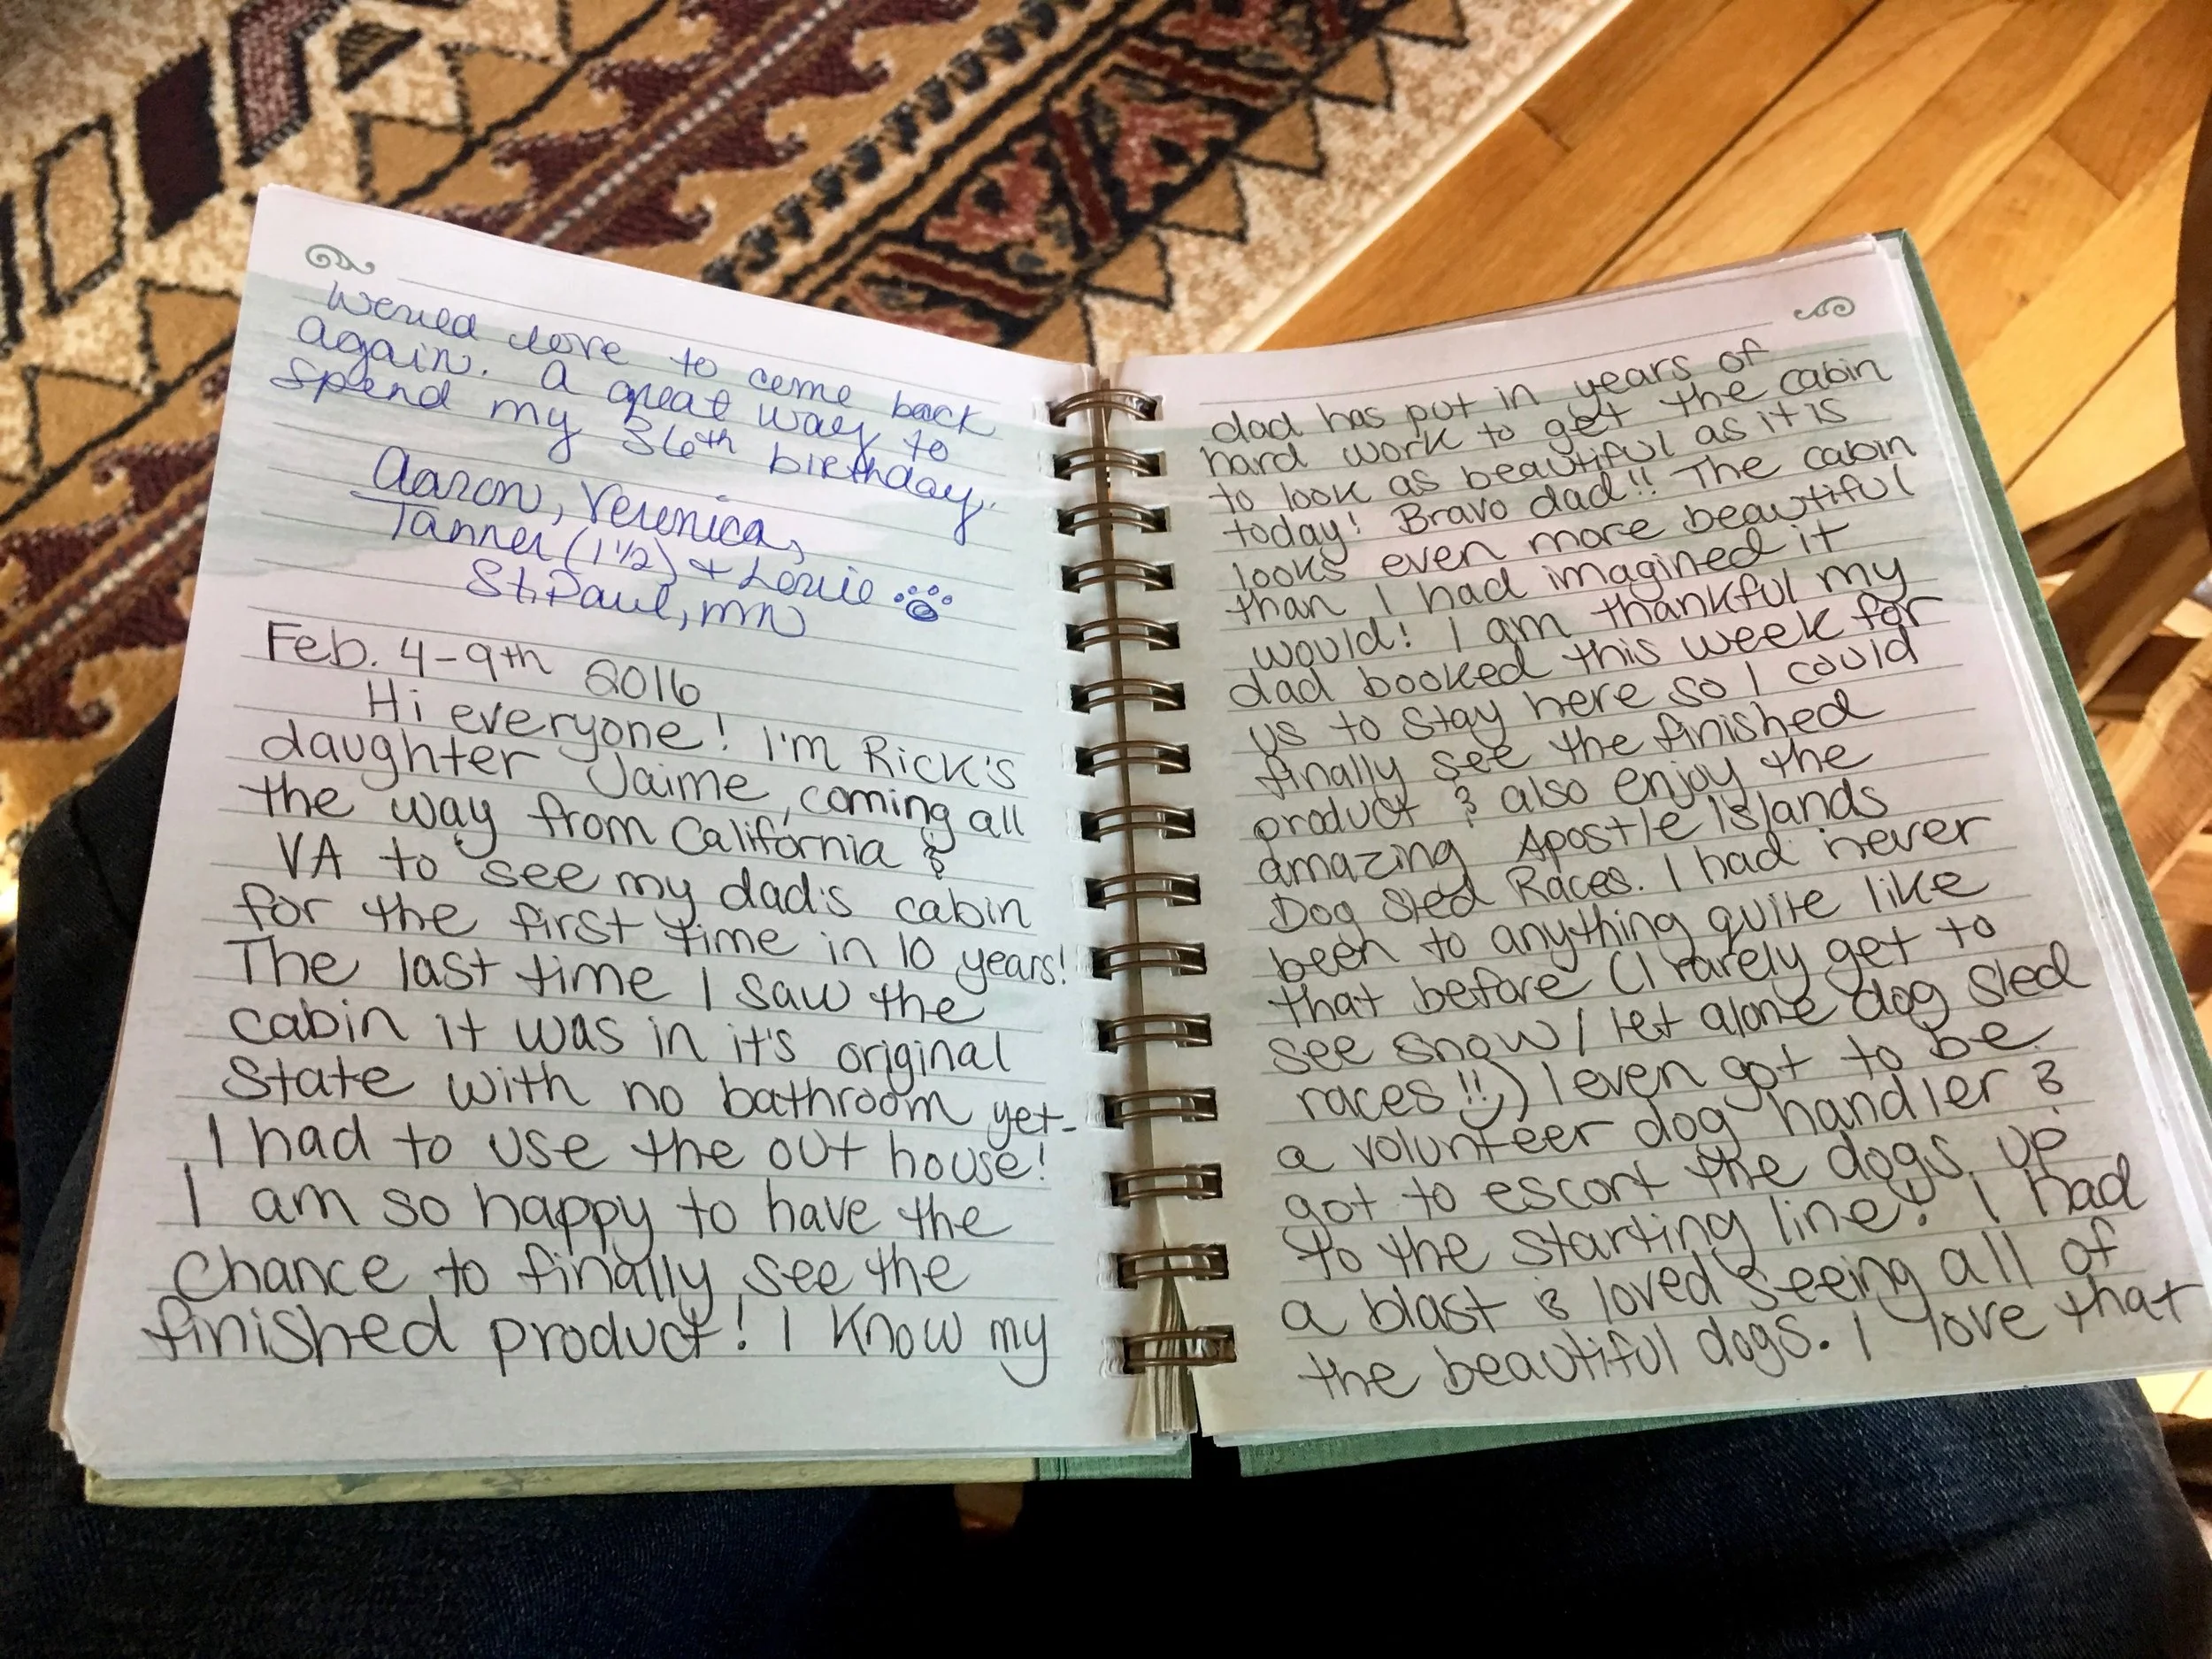 Would love to come back
again. A great way to
spend my 36th birthday.
Aaron, Veronica,
Tanner (1 1/2) + Louie
St. Paul, MN
Feb. 4-9th 2016
Hi everyone! I'm Rick's
daughter Jaime, coming all
the way from California &
VA to see my dad's cabin
for the first time in 10 years!
The last time I saw the
cabin it was in it's original
state with no bathroom yet-
I had to use the out house!
I am so happy to have the
chance to finally see the
finished product! I know my
dad has put in years of
hard work to get the cabin
to look as beautiful as it is
today! Bravo dad!! The cabin
looks even more beautiful
than I had imagined it
would! I am thankful my
dad booked this week for
us to stay here so I could
finally see the finished
product & also enjoy the
amazing Apostle Islands
Dog Sled Races. I had never
been to anything quite like
that before (I rarely get to
see snow, let alone dog sled
races!!) I even got to be
a volunteer dog handler &
got to escort the dogs up
to the starting line! I had
a blast & loved seeing all of
the beautiful dogs. I love that